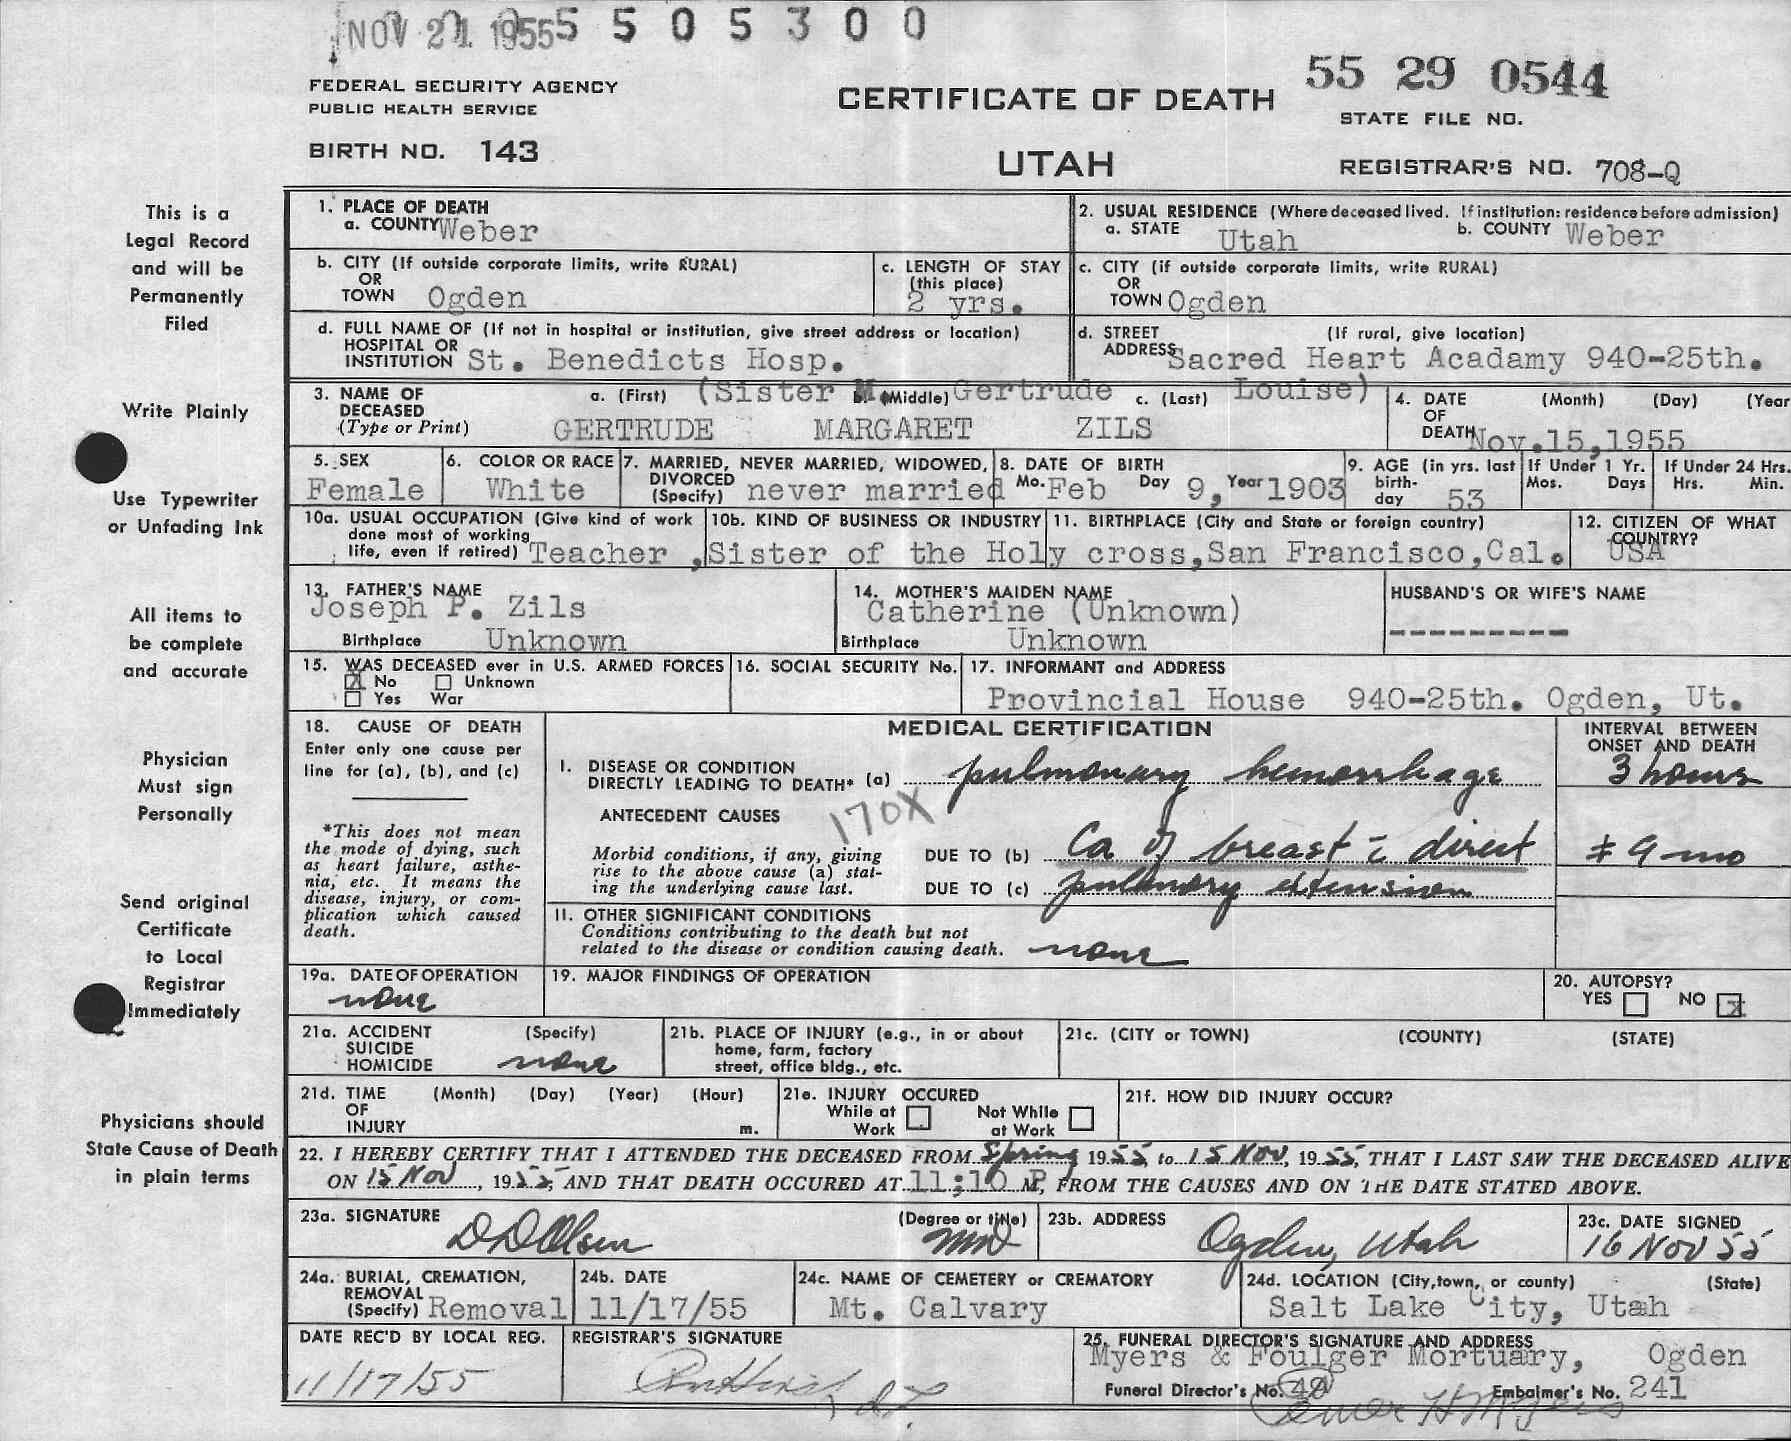 NOV 21 1955 5 5 0 5 3 0 0
55 29 0544
FEDERAL SECURITY AGENCY
PUBLIC HEALTH SERVICE
CERTIFICATE OF DEATH
STATE FILE NO.
BIRTH NO. 143
UTAH
REGISTRAR'S NO. 708-Q
This is a
Legal Record
and will be
Permanently
Filed
Write Plainly
Use Typewriter
or Unfading Ink
All items to
be complete
and accurate
Physician
Must sign
Personally
Send original
Certificate
to Local
Registrar
Immediately
Physicians should
State Cause of Death
in plain terms
1. PLACE OF DEATH
a. COUNTY Weber
2. USUAL RESIDENCE (Where deceased lived. If institution: residence before admission)
a. STATE Utah b. COUNTY Weber
b. CITY (If outside corporate limits, write RURAL)
OR
TOWN Ogden
c. LENGTH OF STAY
(this place)
2 yrs.
c. CITY (if outside corporate limits, write RURAL)
OR
TOWN Ogden
d. FULL NAME OF (If not in hospital or institution, give street address or location)
HOSPITAL OR
INSTITUTION St. Benedicts Hosp.
d. STREET (If rural, give location)
ADDRESS Sacred Heart Acadamy 940-25th.
3. NAME OF DECEASED
(Type or Print)
a. (First) (Sister M. (Middle) Gertrude c. (Last) Louise)
GERTRUDE MARGARET ZILS
4. DATE (Month) (Day) (Year
OF
DEATH Nov.15,1955
5. SEX
Female
6. COLOR OR RACE
White
7. MARRIED, NEVER MARRIED, WIDOWED,
DIVORCED
(Specify) never married
8. DATE OF BIRTH
Mo. Feb Day 9, Year 1903
9. AGE (in yrs. last
birth-
day 53
If Under 1 Yr.
Mos. Days
If Under 24 Hrs.
Hrs. Min.
10a. USUAL OCCUPATION (Give kind of work
done most of working
life, even if retired) Teacher ,
10b. KIND OF BUSINESS OR INDUSTRY
Sister of the Holy cross,
11. BIRTHPLACE (City and State or foreign country)
San Francisco,Cal.
12. CITIZEN OF WHAT
COUNTRY?
USA
13. FATHER'S NAME
Joseph P. Zils
Birthplace Unknown
14. MOTHER'S MAIDEN NAME
Catherine (Unknown)
Birthplace Unknown
HUSBAND'S OR WIFE'S NAME
----------
15. WAS DECEASED ever in U.S. ARMED FORCES
X No Unknown
Yes War
16. SOCIAL SECURITY No.
17. INFORMANT and ADDRESS
Provincial House 940-25th. Ogden, Ut.
18. CAUSE OF DEATH
Enter only one cause per
line for (a), (b), and (c)
*This does not mean
the mode of dying, such
as heart failure, asthe-
nia, etc. It means the
disease, injury, or com-
plication which caused
death.
MEDICAL CERTIFICATION
INTERVAL BETWEEN
ONSET AND DEATH
I. DISEASE OR CONDITION
DIRECTLY LEADING TO DEATH* (a) pulmonary hemorrhage 3 hours
170X
ANTECEDENT CAUSES
Morbid conditions, if any, giving
rise to the above cause (a) stat-
ing the underlying cause last.
DUE TO (b) Ca of breast c̄ direct ± 9 mo
DUE TO (c) pulmonary extension
II. OTHER SIGNIFICANT CONDITIONS
Conditions contributing to the death but not
related to the disease or condition causing death. none
19a. DATE OF OPERATION
none
19. MAJOR FINDINGS OF OPERATION
20. AUTOPSY?
YES NO X
21a. ACCIDENT (Specify)
SUICIDE
HOMICIDE none
21b. PLACE OF INJURY (e.g., in or about
home, farm, factory
street, office bldg., etc.
21c. (CITY or TOWN) (COUNTY) (STATE)
21d. TIME (Month) (Day) (Year) (Hour)
OF
INJURY m.
21e. INJURY OCCURED
While at Work Not While at Work
21f. HOW DID INJURY OCCUR?
22. I HEREBY CERTIFY THAT I ATTENDED THE DECEASED FROM Spring 1955, to 15 Nov, 1955, THAT I LAST SAW THE DECEASED ALIVE
ON 15 Nov, 1955, AND THAT DEATH OCCURED AT 11:10 P M, FROM THE CAUSES AND ON THE DATE STATED ABOVE.
23a. SIGNATURE (Degree or title)
D D Olsen MD
23b. ADDRESS
Ogden, Utah
23c. DATE SIGNED
16 Nov 55
24a. BURIAL, CREMATION,
REMOVAL
(Specify) Removal
24b. DATE
11/17/55
24c. NAME OF CEMETERY or CREMATORY
Mt. Calvary
24d. LOCATION (City,town, or county) (State)
Salt Lake City, Utah
DATE REC'D BY LOCAL REG.
11/17/55
REGISTRAR'S SIGNATURE
25. FUNERAL DIRECTOR'S SIGNATURE AND ADDRESS
Myers & Foulger Mortuary, Ogden
Funeral Director's No. Embalmer's No. 241